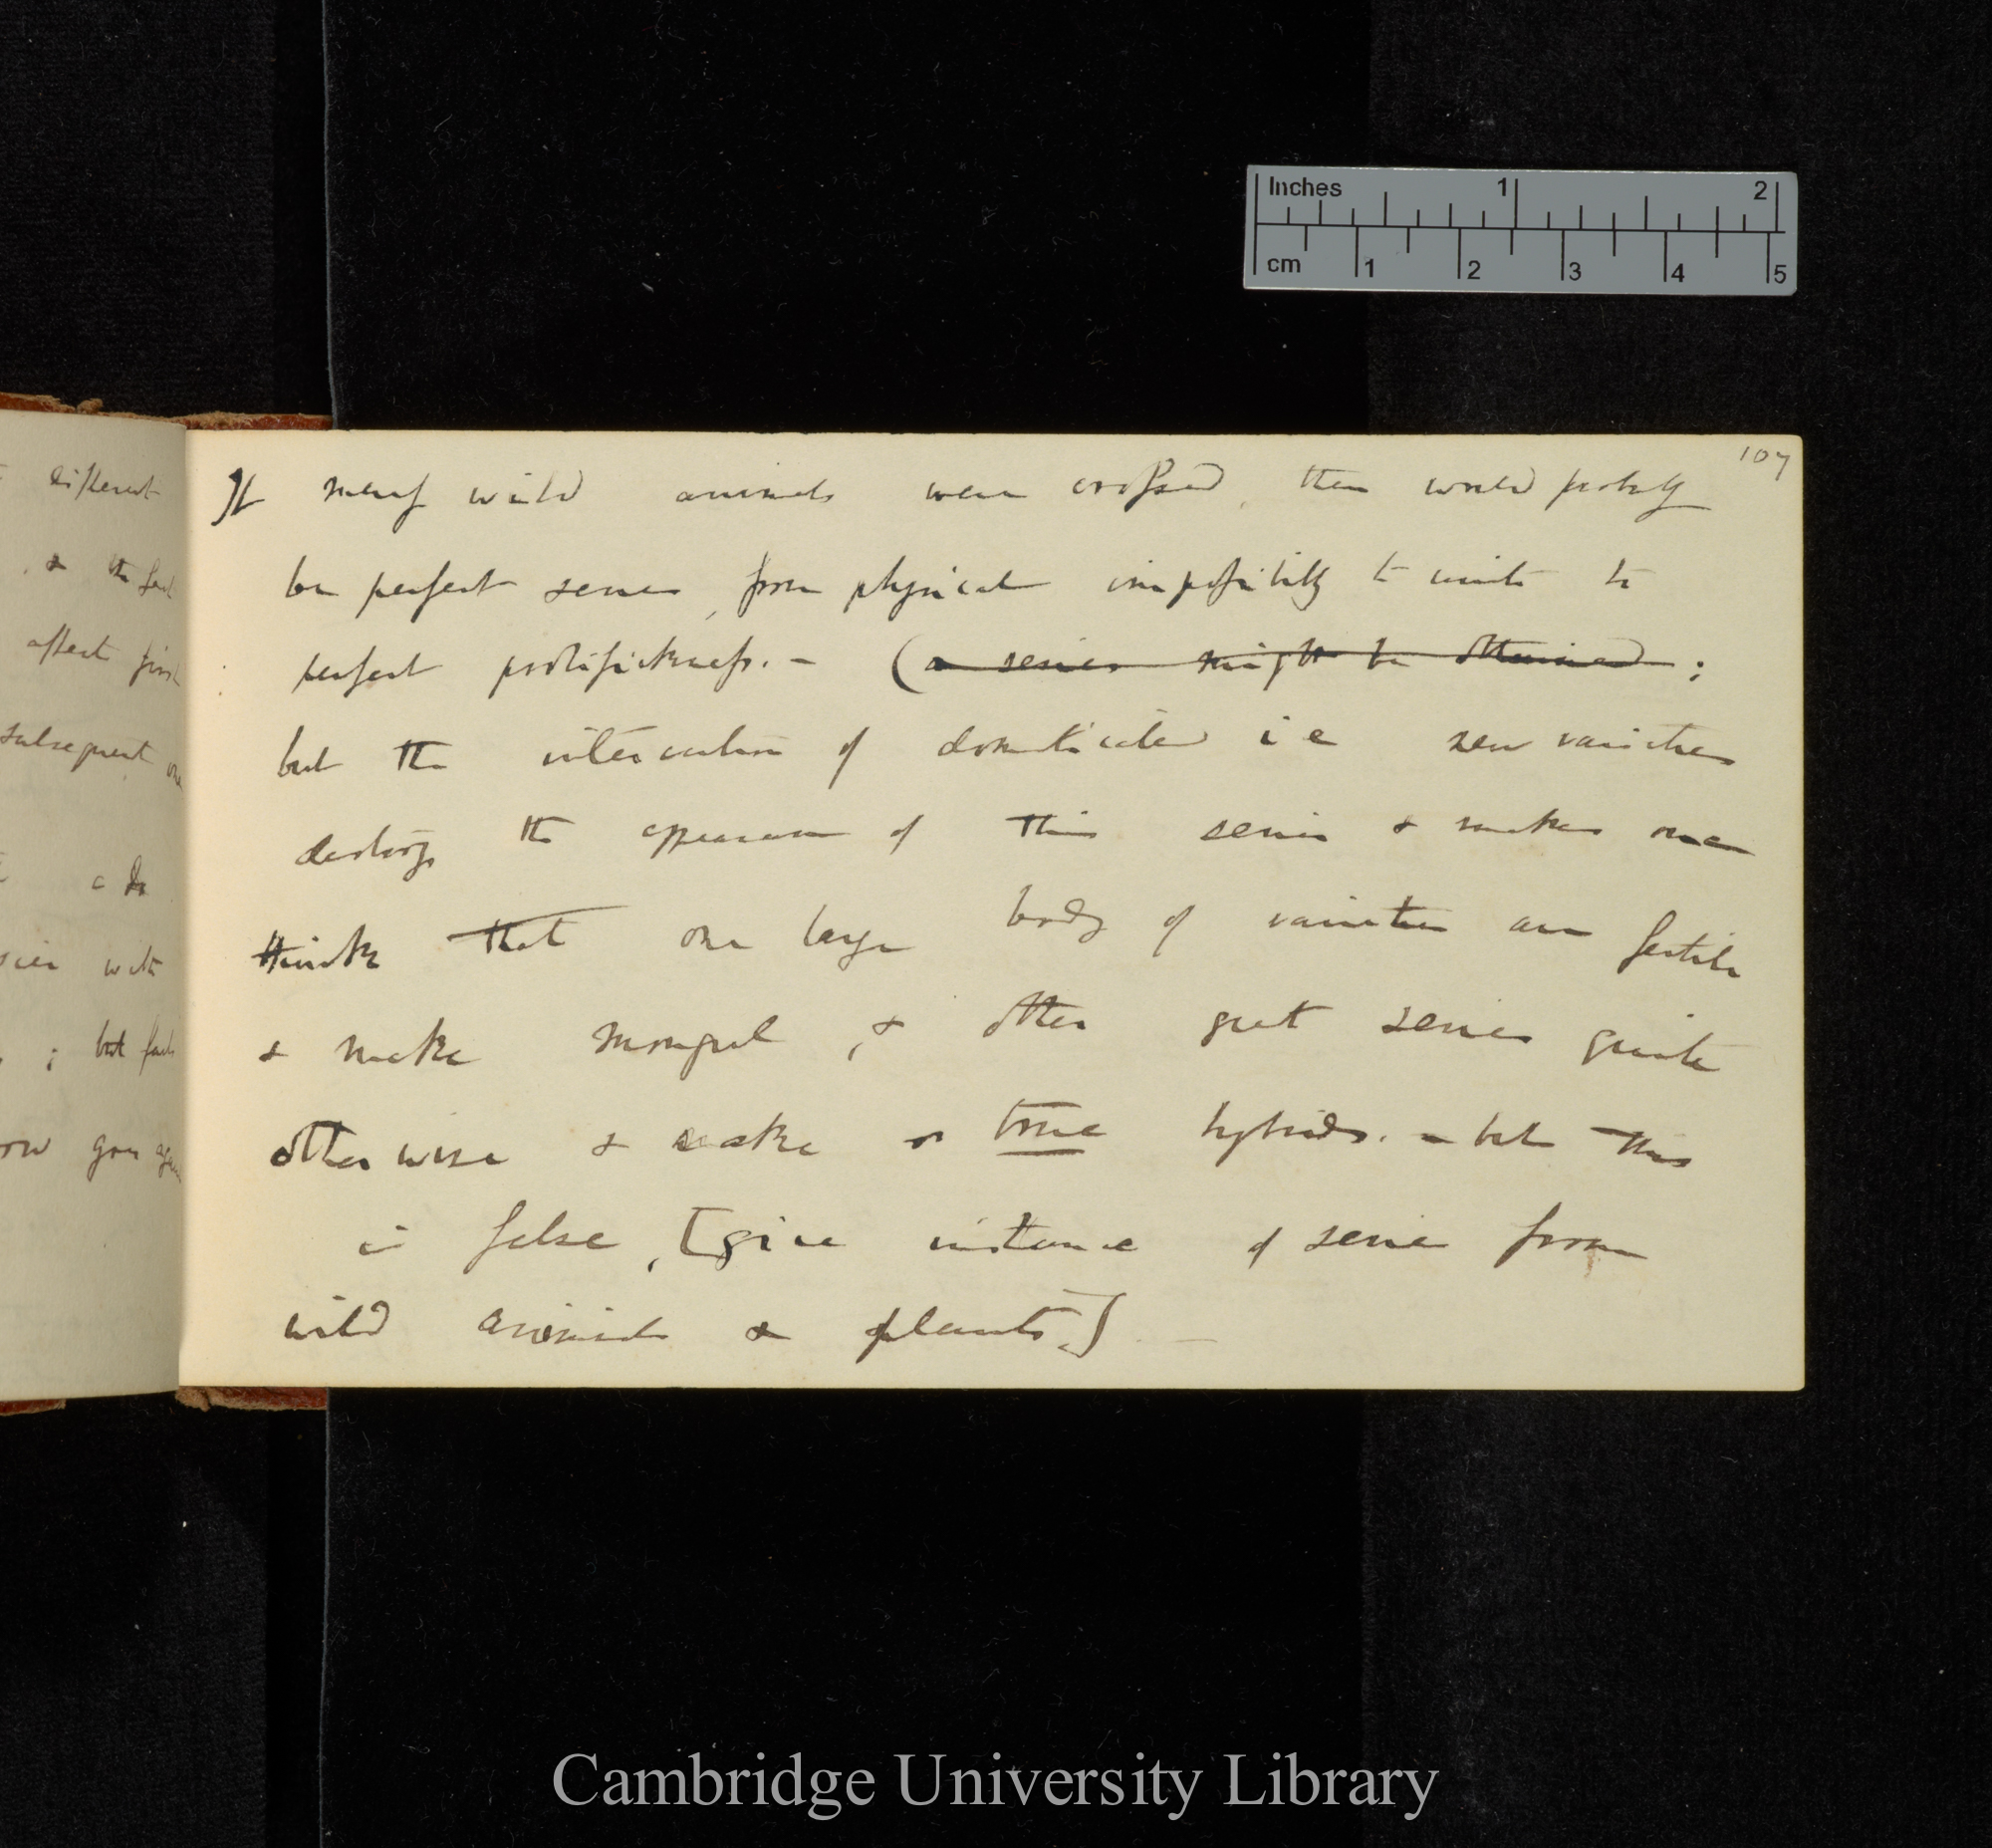 Inches 1 2
cm 1 2 3 4 5
107
If many wild animals were crossed, there would probably
be perfect series, from physical impossibility to unite to
perfect prolifickness. – (a series might be obtained;
but the intervention of domesticated i e new varieties
destroys the appearance of this series & makes one
think that one large body of varieties are fertile
& make mongrel, & other great series quite
otherwise & make true hybrids. – but this
is false, [give instance of series from
wild animals & plants] —
different
& the fact
affect first
subsequent
with
; but
grow
Cambridge University Library